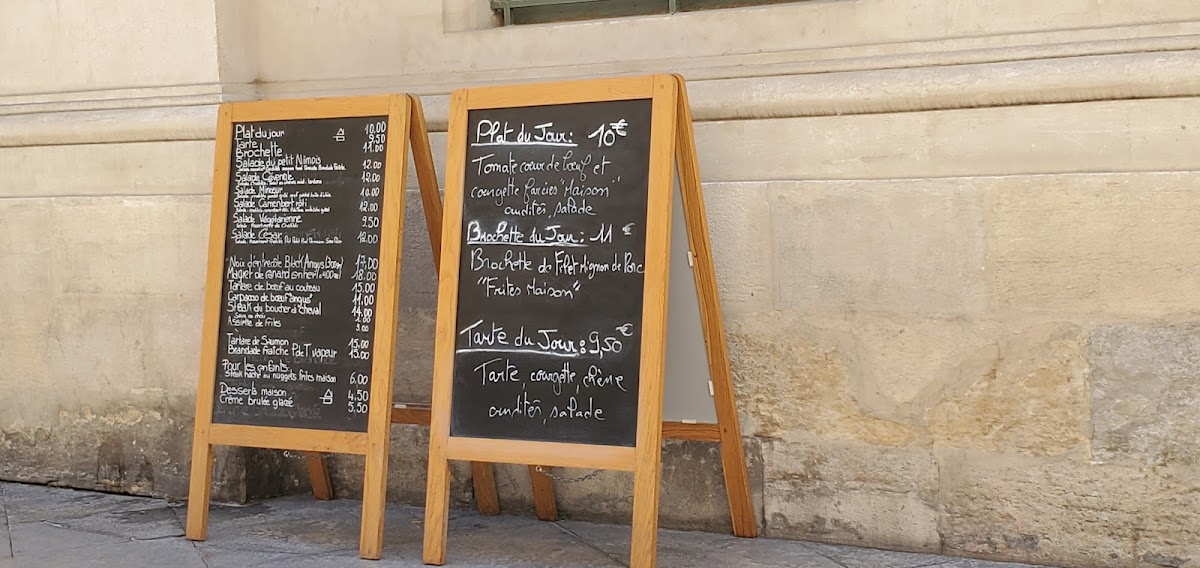 Plat du jour 10.00
Tarte 9.50
Brochette 11.00
Salade du petit Nîmois 12.00
Salade Cévenole 12.00
Salade Minceur 10.00
Salade Camembert rôti 12.00
Salade Végétarienne 9.50
Salade César 12.00
Noix d'entrecôte Black Angus 17.00
Magret de canard entier 18.00
Tartare de bœuf au couteau 15.00
Carpaccio de bœuf "angus" 11.00
Steak du boucher à cheval 14.00
Assiette de frites 3.00
Tartare de Saumon 15.00
Brandade fraîche P de T vapeur 15.00
Pour les enfants
Steak haché ou nuggets frites maison 6.00
Desserts maison 4.50
Crème brulée glacée 5.50
Plat du Jour: 10€
Tomate cœur de bœuf et
courgette farcies "Maison"
crudités, salade
Brochette du Jour: 11 €
Brochette de Filet Mignon de Porc
"Frites Maison"
Tarte du Jour: 9,50€
Tarte, courgette, chèvre
crudités, salade